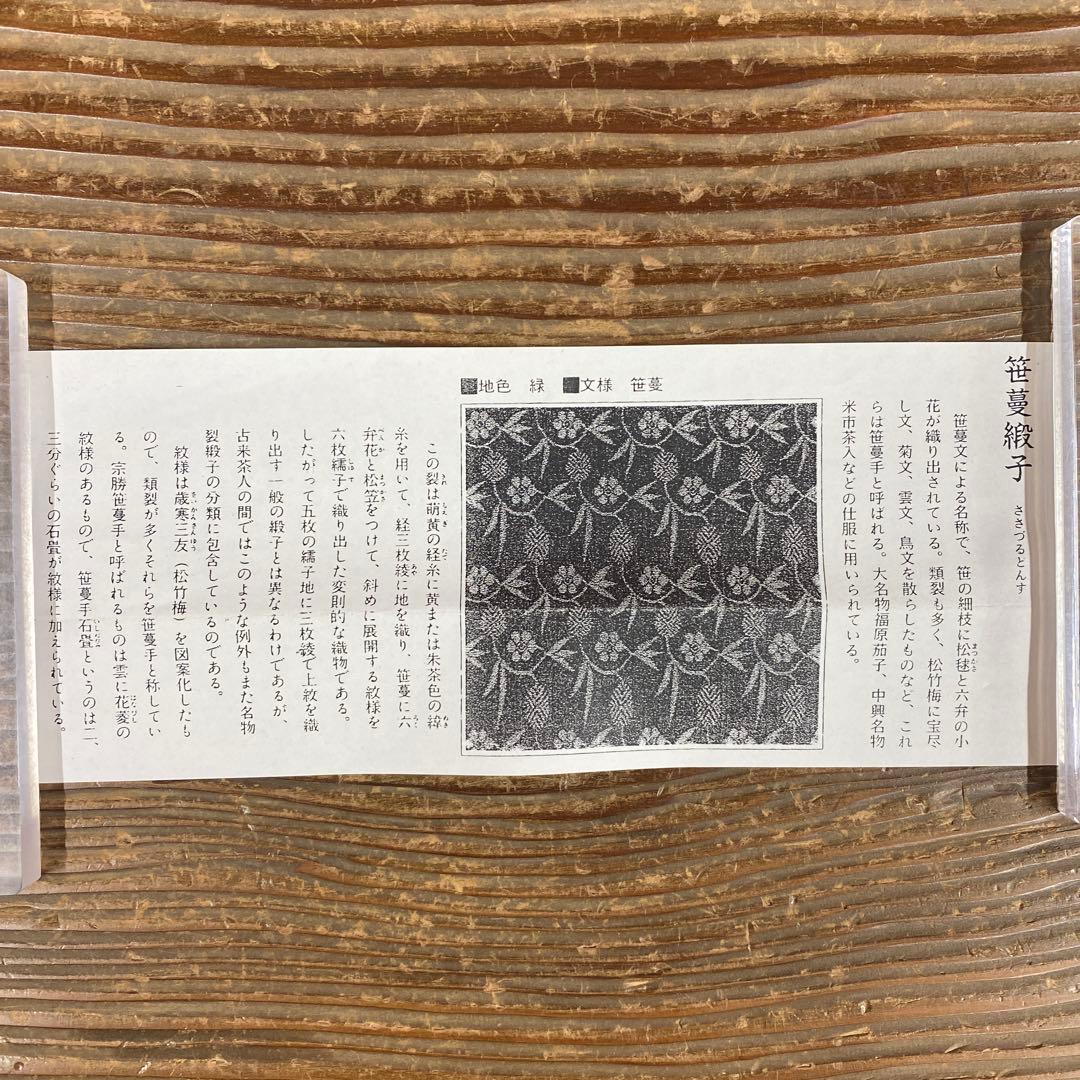 笹蔓緞子
ささづるどんす
笹蔓文による名称で、笹の細枝に松毬と六弁の小
花が織り出されている。類裂も多く、松竹梅に宝尽
し文、菊文、雲文、鳥文を散らしたものなど、これ
らは笹蔓手と呼ばれる。大名物福原茄子、中興名物
米市茶入などの仕服に用いられている。
地色 緑 文様 笹蔓
この裂は萌黄の経糸に黄または朱茶色の緯
糸を用いて、経三枚綾に地を織り、笹蔓に六
弁花と松笠をつけて、斜めに展開する紋様を
六枚繻子で織り出した変則的な織物である。
したがって五枚の繻子地に三枚綾で上紋を織
り出す一般の緞子とは異なるわけであるが、
古来茶人の間ではこのような例外もまた名物
裂緞子の分類に包含しているのである。
紋様は歳寒三友（松竹梅）を図案化したも
ので、類裂が多くそれらを笹蔓手と称してい
る。宗勝笹蔓手と呼ばれるものは雲に花菱の
紋様のあるもので、笹蔓手石畳というのは二、
三分ぐらいの石畳が紋様に加えられている。